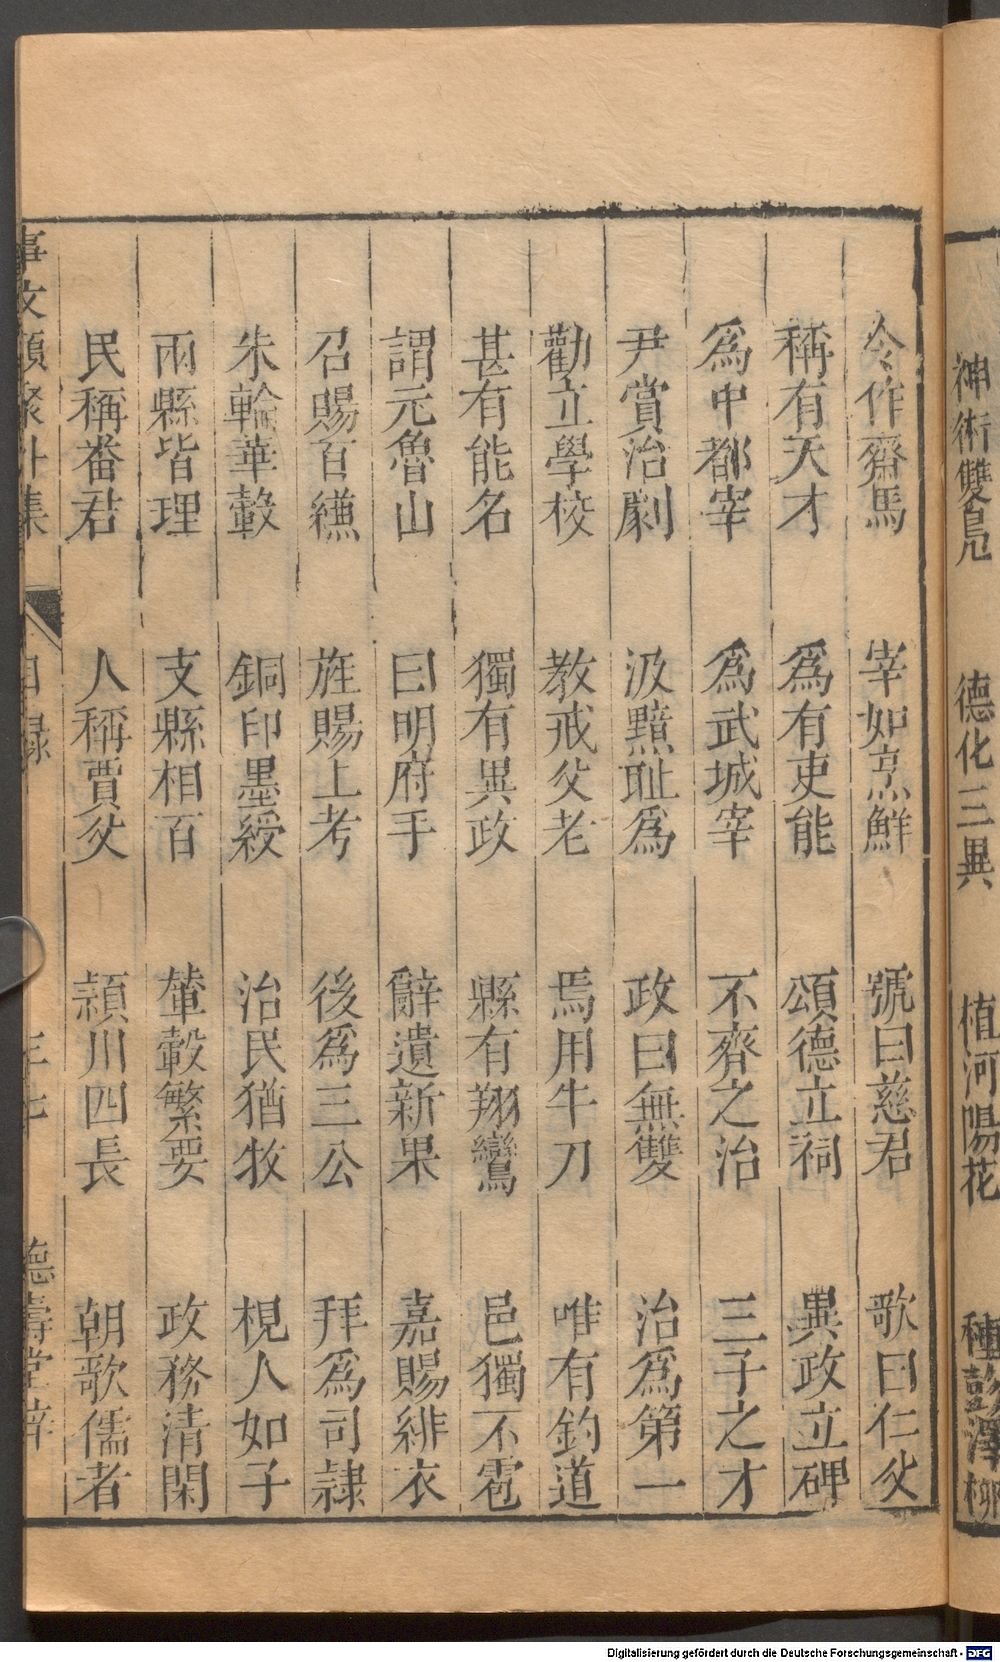 神術雙鳧　德化三異　植河陽花　種彭澤柳
令作齋馬　宰如烹鮮　號曰慈君　歌曰仁父
稱有天才　爲有吏能　頌德立祠　異政立碑
爲中都宰　爲武城宰　不齊之治　三子之才
尹賞治劇　汲黯耻爲　政曰無雙　治爲第一
勸立學校　教戒父老　焉用牛刀　唯有釣道
甚有能名　獨有異政　縣有翔鸞　邑獨不雹
謂元魯山　曰明府手　辭遺新果　嘉賜緋衣
召賜百縑　旌賜上考　後爲三公　拜爲司隷
朱輪華轂　銅印墨綬　治民猶牧　梘人如子
兩縣皆理　支縣相百　輦轂繁要　政務清閑
民稱畨君　人稱賈父　頴川四長　朝歌儒者
事文類聚外集　目録　德壽堂梓
Digitalisierung gefördert durch die Deutsche Forschungsgemeinschaft - DFG